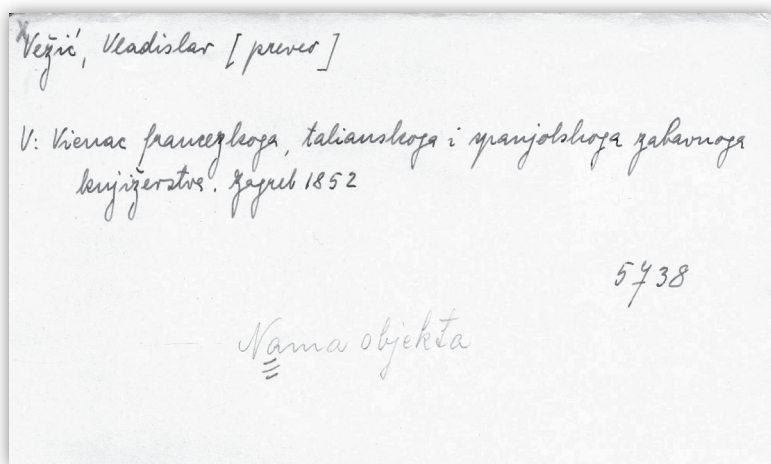 x Vežić, Vladislav [preveo]
V: Vienac francezkoga, talianskoga i spanjolskoga zabavnoga
knjižerstva. Zagreb 1852
5738
Nama objekta